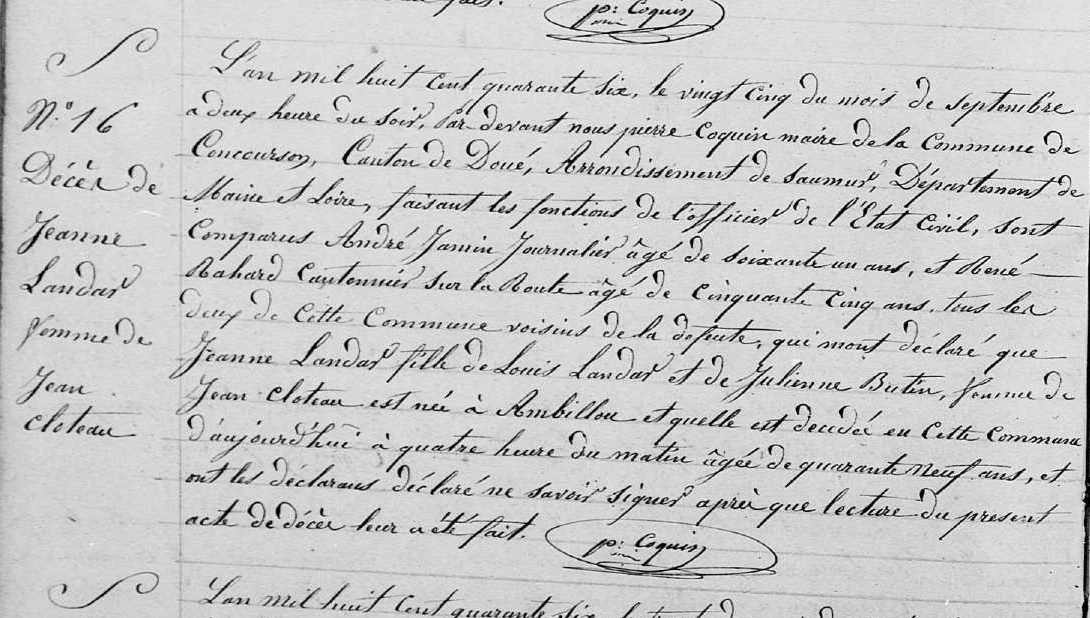 fait.
p: Coquin
N.° 16
Décès de
Jeanne
Landar
femme de
Jean
cloteau
L'an mil huit cent quarante six, le vingt cinq du mois de septembre
a deux heure du soir, Par devant nous pierre Coquin maire de la Commune de
Concourson, Canton de Doué, Arrondissement de saumur, Département de
Maine et Loire, faisant les fonctions de l'officier de l'Etat Civil, sont
Comparus André Jamin Journalier âgé de soixante un ans, et René
Rahard Cantonnier sur la Route âgé de Cinquante Cinq ans, tous les
deux de Cette Commune voisins de la defunte, qui mont déclaré que
Jeanne Landar fille de Louis Landar et de Julienne Butin, femme de
Jean cloteau est née à Ambillou et quelle est decedée en Cette Commune
d'aujourd'hui à quatre heure du matin âgée de quarante neuf ans, et
ont les déclarans déclaré ne savoir signer après que lecture du present
acte de décès leur a été fait.
p: Coquin
L'an mil huit Cent quarante six